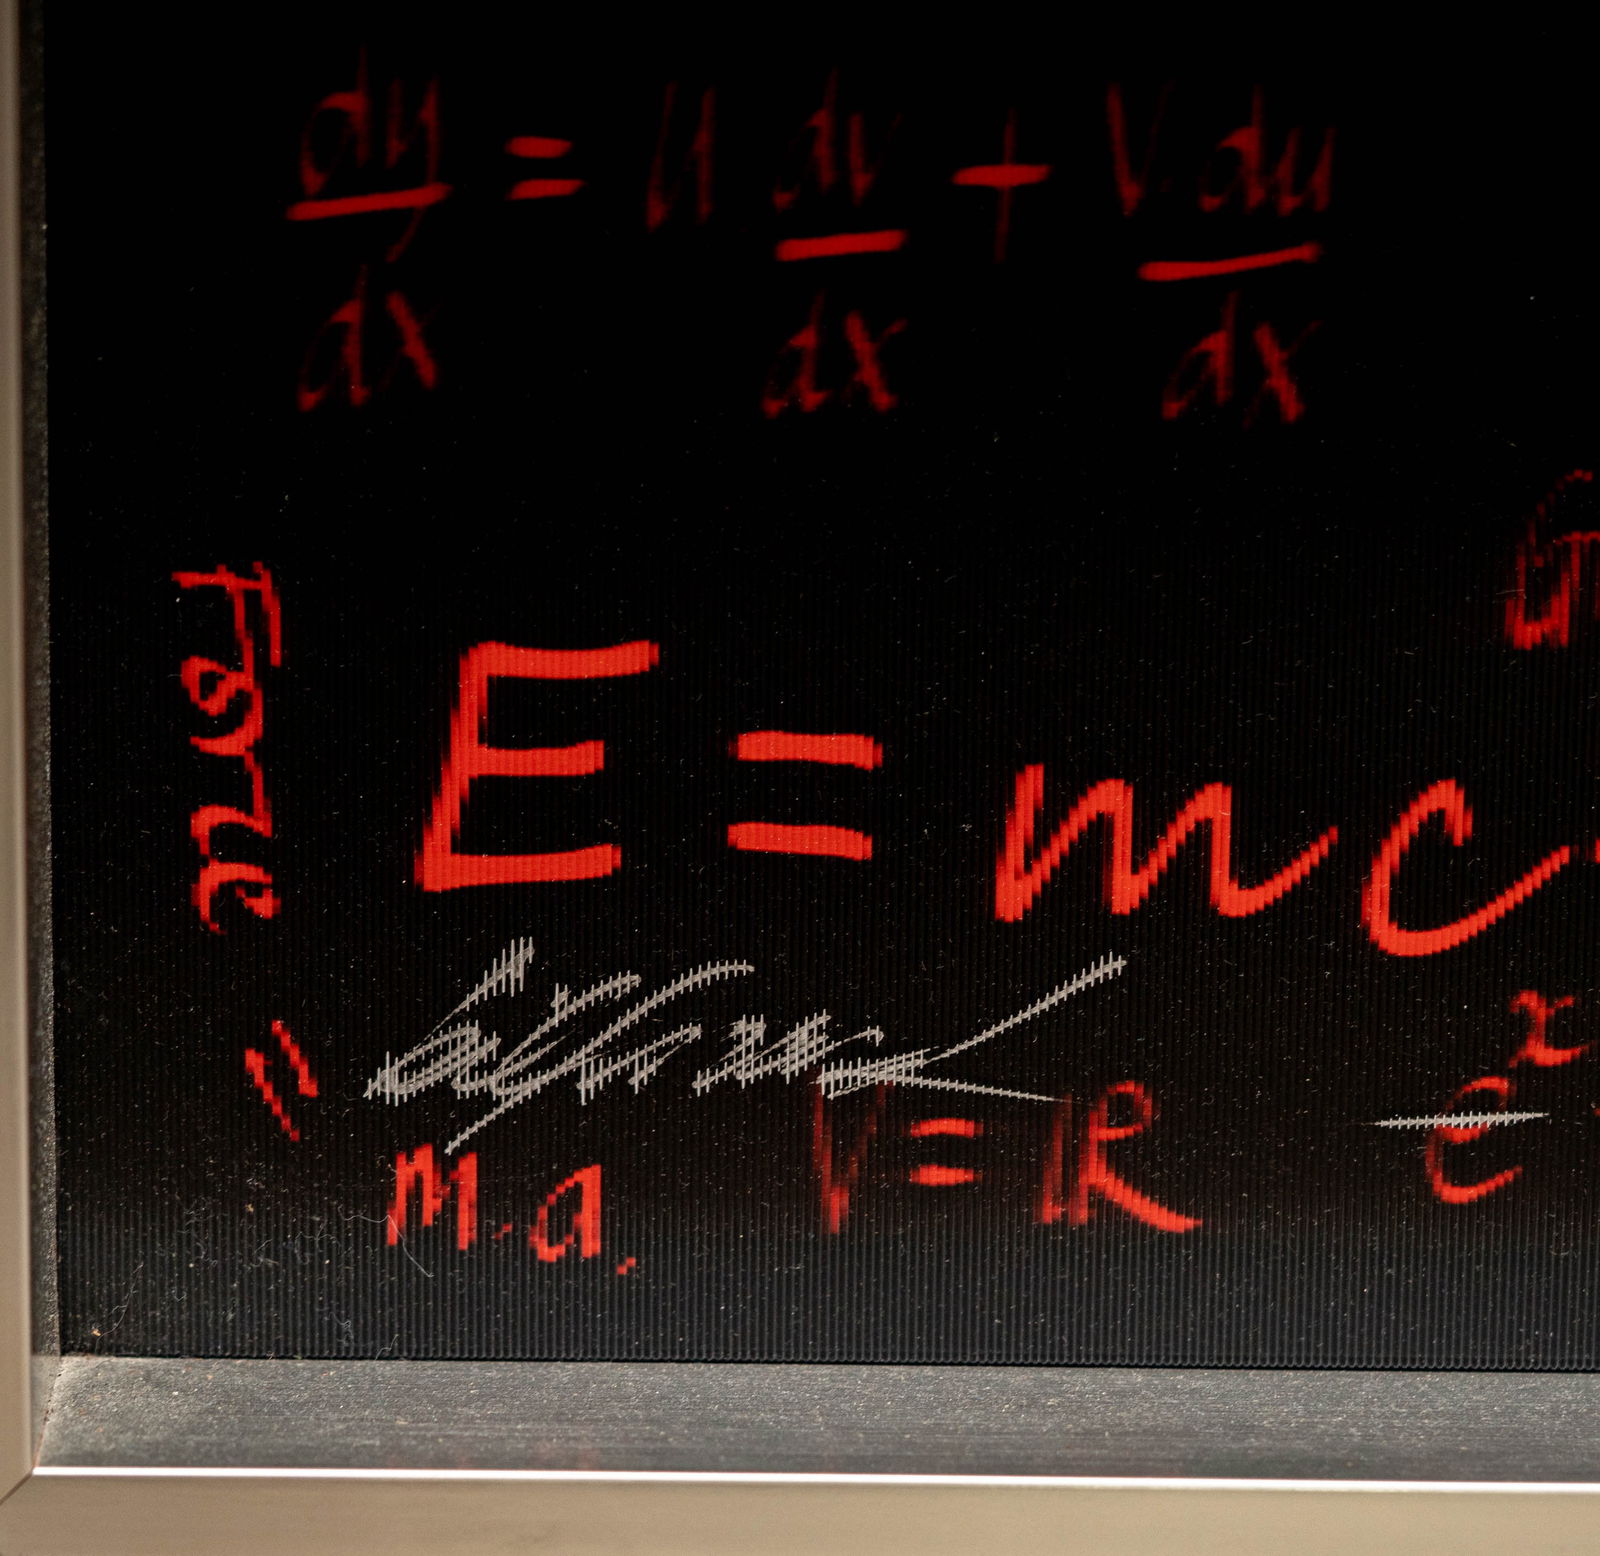 dy/dx = u dv/dx + v. du/dx
Force = m.a.
E = mc
V = IR
e x